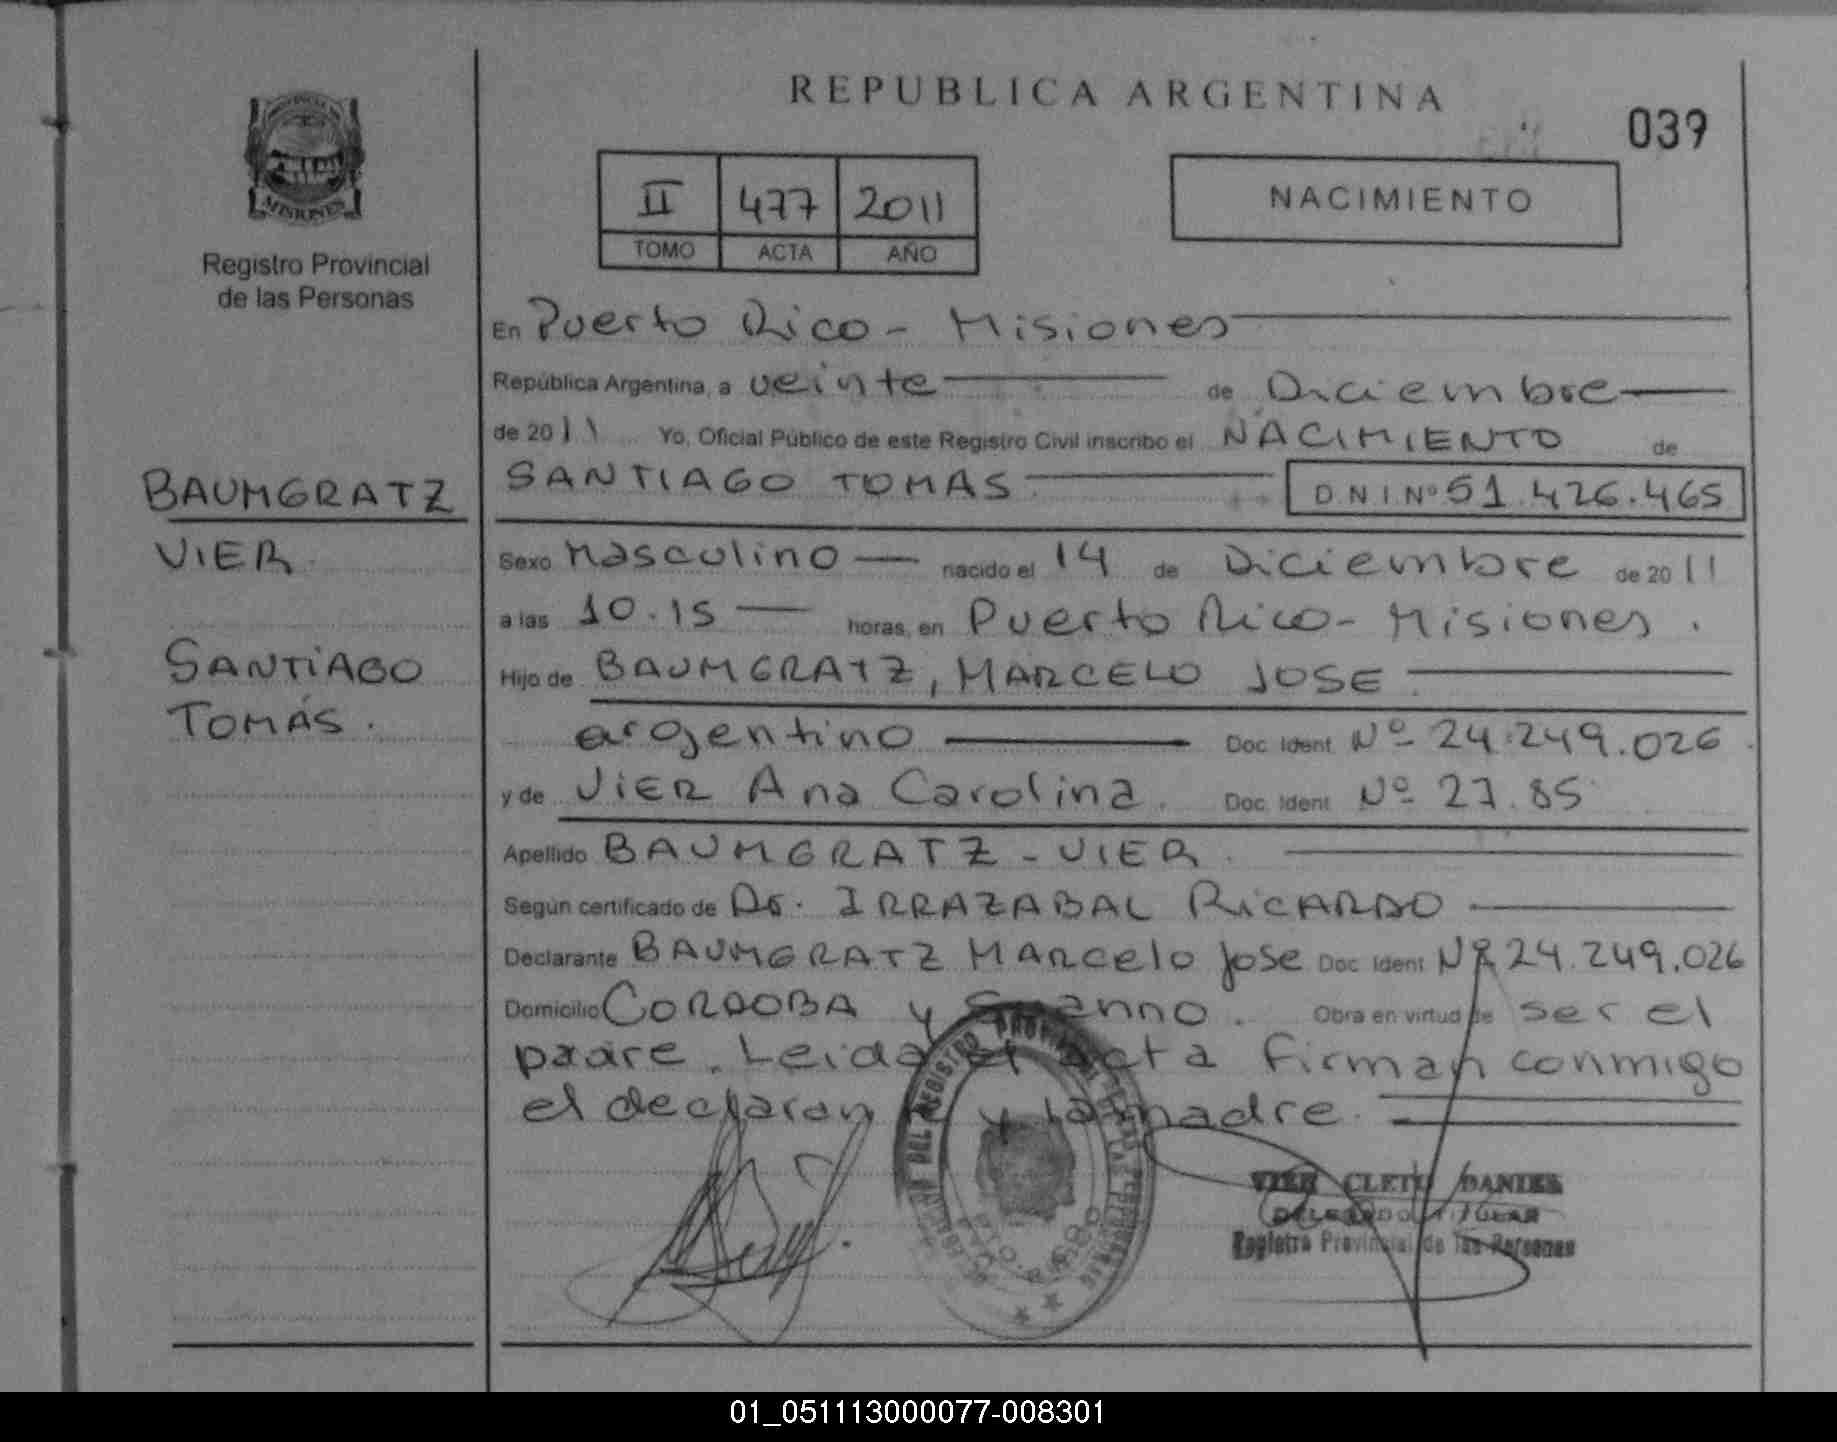 REPUBLICA ARGENTINA
039
MISIONES
Registro Provincial
de las Personas
II 477 2011
TOMO ACTA AÑO
NACIMIENTO
En Puerto Rico - Misiones
República Argentina, a veinte de Diciembre
de 2011 Yo, Oficial Público de este Registro Civil inscribo el NACIMIENTO de
SANTIAGO TOMAS D.N.I Nº 51.426.465
BAUMGRATZ
VIER
SANTIAGO
TOMÁS.
Sexo Masculino nacido el 14 de Diciembre de 2011
a las 10.15 horas, en Puerto Rico - Misiones.
Hijo de BAUMGRATZ, MARCELO JOSE
argentino Doc. Ident. Nº 24.249.026
y de VIER Ana Carolina. Doc. Ident. Nº 27.85
Apellido BAUMGRATZ - VIER.
Según certificado de Dr. IRRAZABAL RICARDO
Declarante BAUMGRATZ MARCELO Jose Doc. Ident. Nº 24.249.026
Domicilio CORDOBA y Obra en virtud de ser el
padre. Leida el acta firman conmigo
el declaran y la madre.
VIER CLETO DANIEL
DELEGADO TITULAR
Registro Provincial de las Personas
01_051113000077-008301